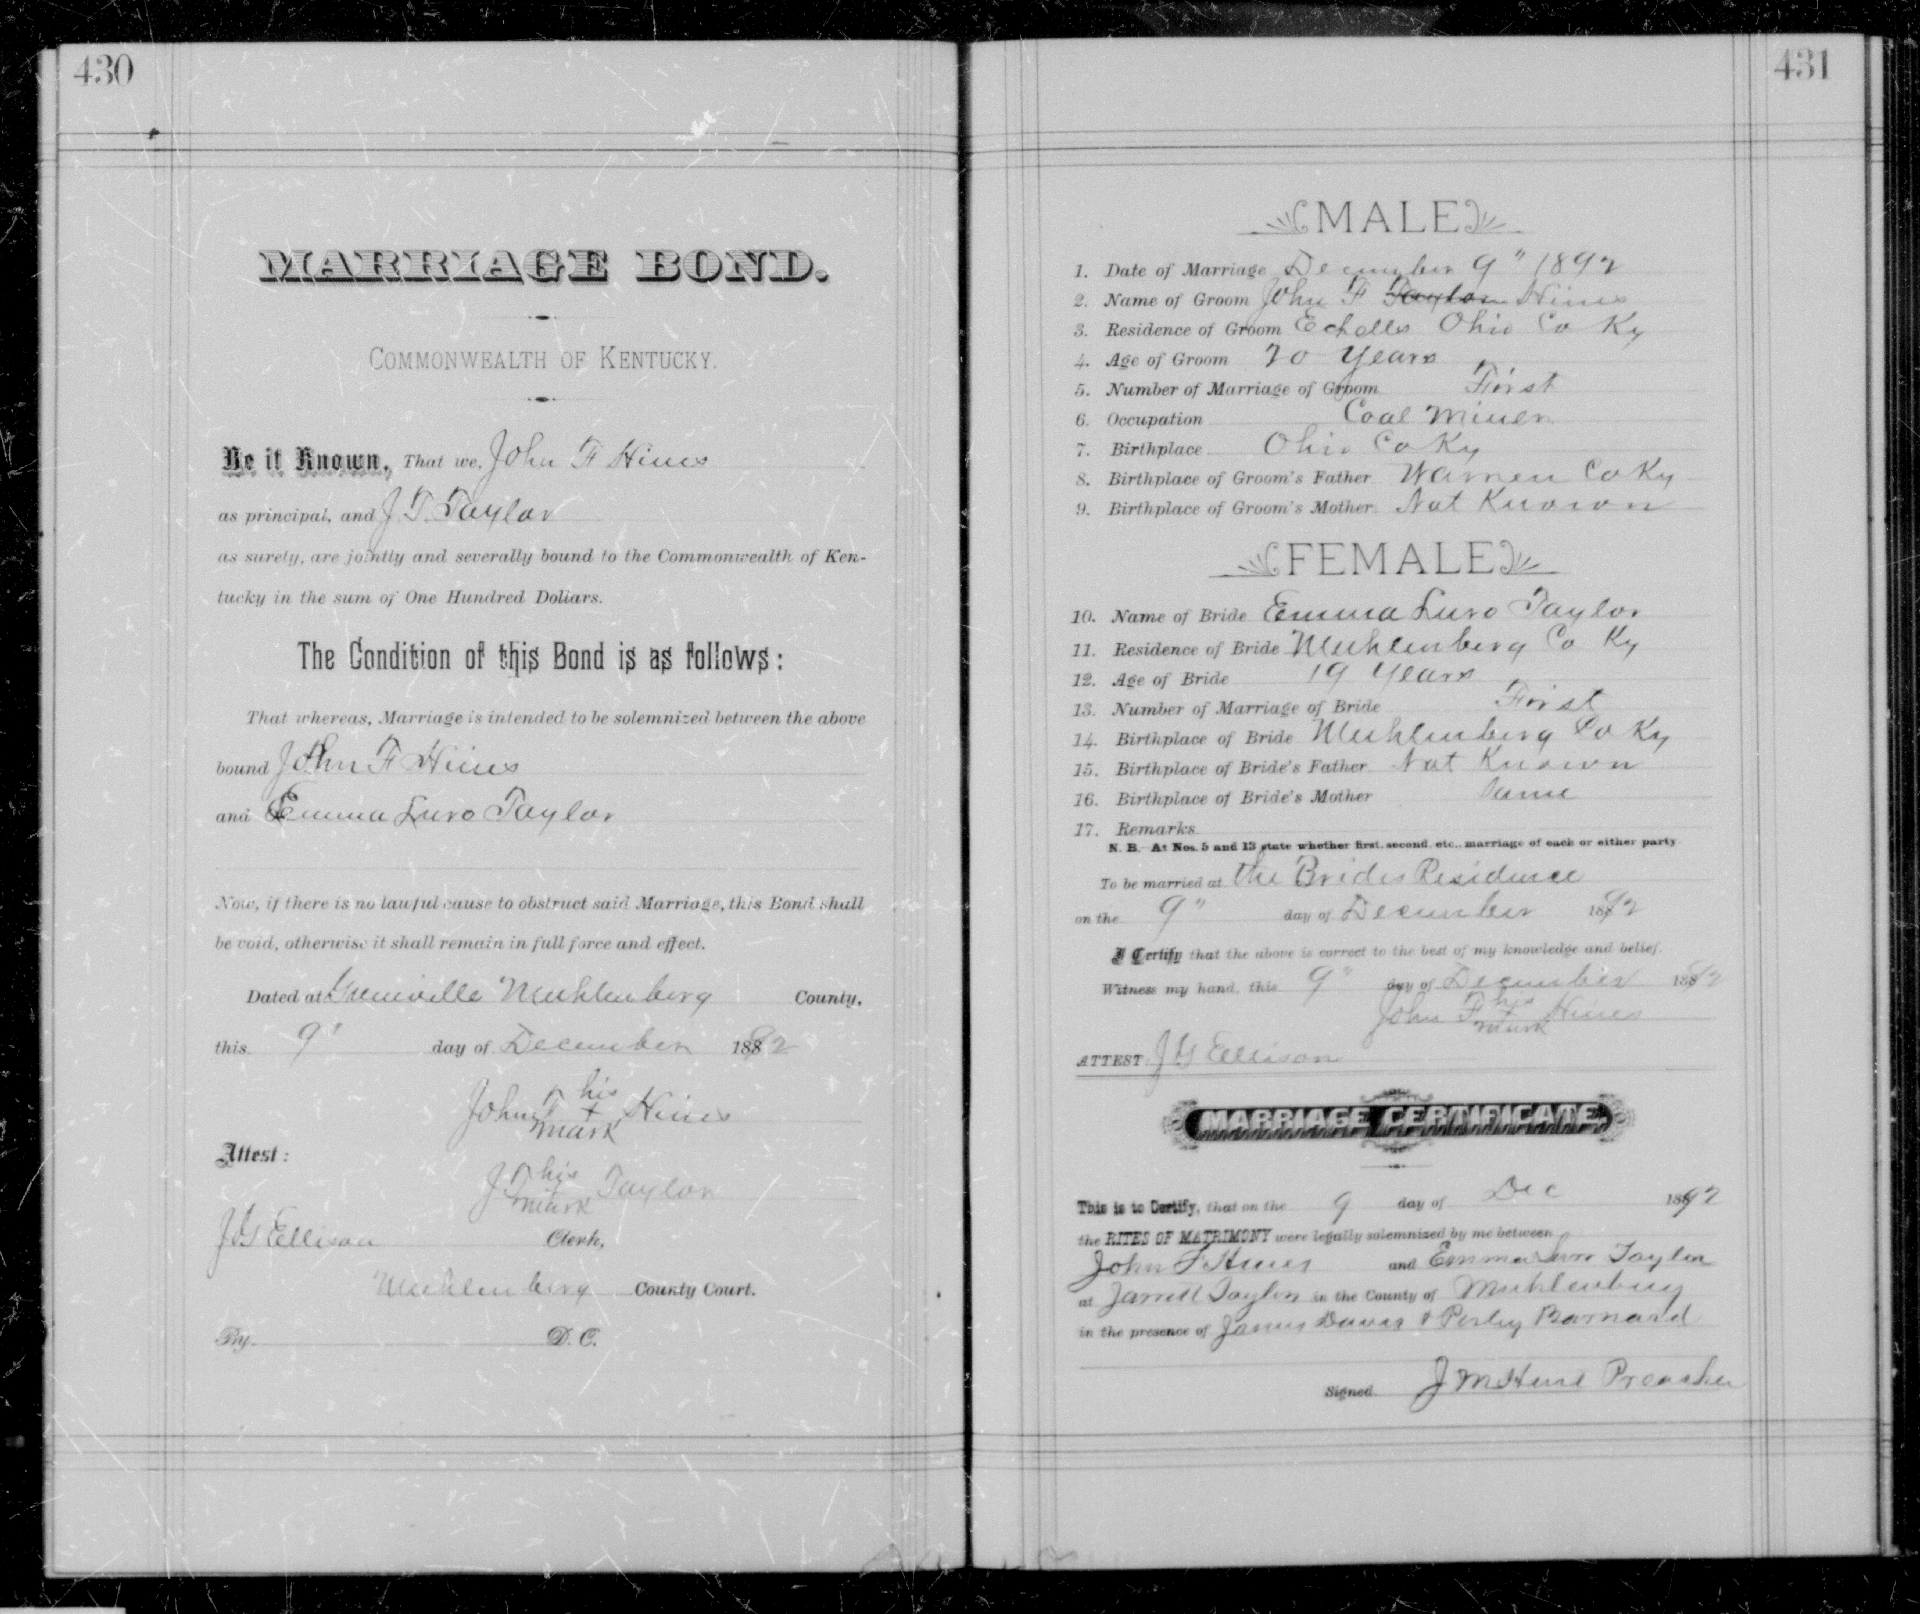 430
MARRIAGE BOND.
COMMONWEALTH OF KENTUCKY.
Be it Known, That we, John F Hines
as principal, and J. T. Taylor
as surety, are jointly and severally bound to the Commonwealth of Ken-
tucky in the sum of One Hundred Dollars.
The Condition of this Bond is as follows:
That whereas, Marriage is intended to be solemnized between the above
bound John F Hines
and Emma Luro Taylor
Now, if there is no lawful cause to obstruct said Marriage, this Bond shall
be void, otherwise it shall remain in full force and effect.
Dated at Greenville Muhlenberg County,
this 9" day of December 1892
his
John F + Hines
mark
Attest:
his
J T Taylor
mark
J G Ellison Clerk,
Muhlenberg County Court.
By D. C.
431
MALE
1. Date of Marriage December 9" 1892
2. Name of Groom John F Taylor Hines
3. Residence of Groom Echolls Ohio Co Ky
4. Age of Groom 20 Years
5. Number of Marriage of Groom First
6. Occupation Coal Miner
7. Birthplace Ohio Co Ky
8. Birthplace of Groom's Father Warren Co Ky
9. Birthplace of Groom's Mother Not Known
FEMALE
10. Name of Bride Emma Luro Taylor
11. Residence of Bride Muhlenberg Co Ky
12. Age of Bride 19 Years
13. Number of Marriage of Bride First
14. Birthplace of Bride Muhlenberg Co Ky
15. Birthplace of Bride's Father Not Known
16. Birthplace of Bride's Mother Same
17. Remarks
N. B. At Nos. 5 and 13 state whether first, second, etc., marriage of each or either party
To be married at the Brides Residence
on the 9" day of December 1892
I Certify that the above is correct to the best of my knowledge and belief.
Witness my hand, this 9" day of December 1892
his
John F + Hines
mark
ATTEST: J G Ellison
MARRIAGE CERTIFICATE.
This is to Certify, that on the 9 day of Dec 1892
the RITES OF MATRIMONY were legally solemnized by me between
John F Hines and Emma Luro Taylor
at Jarrett Taylor in the County of Muhlenburg
in the presence of James Davis & Perley Barnard
Signed. J M Preacher